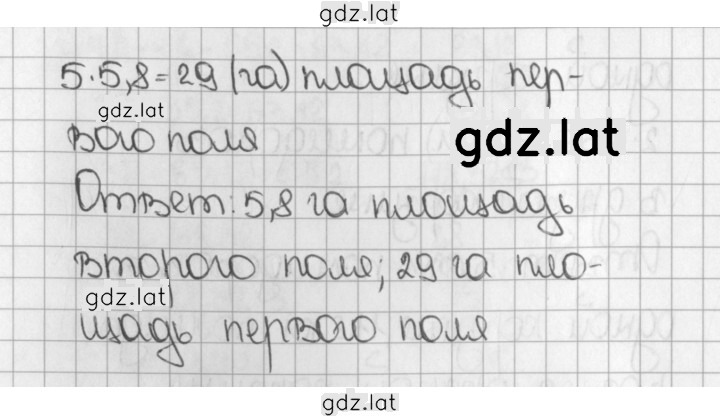 gdz.lat
5·5,8=29 (га) площадь пер-
gdz.lat
вого поля
gdz.lat
Ответ: 5,8 га площадь
второго поля; 29 га пло-
gdz.lat
щадь первого поля
gdz.lat